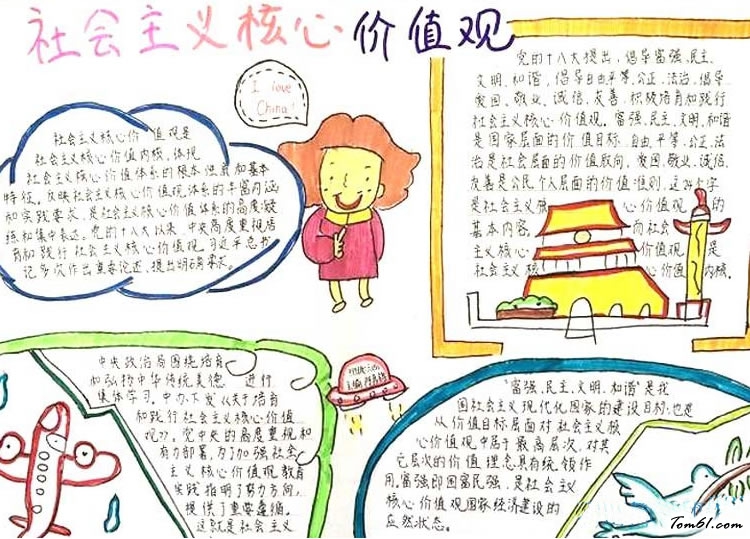 社会主义核心价值观
I love
China!
社会主义核心价值观是
社会主义核心价值内核,体现
社会主义核心价值体系的根本性质和基本
特征,反映社会主义核心价值观体系的丰富内涵
和实践要求,是社会主义核心价值体系的高度凝
练和集中表达。党的十八大以来,中央高度重视培
育和践行社会主义核心价值观。习近平总书
记多次作出重要论述,提出明确要求。
党的十八大提出,倡导富强、民主、
文明、和谐,倡导自由、平等、公正、法治,倡导
爱国、敬业、诚信、友善,积极培育和践行
社会主义核心价值观。富强、民主、文明、和谐
是国家层面的价值目标,自由、平等、公正、法
治是社会层面的价值取向,爱国、敬业、诚信、
友善是公民个人层面的价值准则,这24个字
是社会主义核心价值观的
基本内容,而社会
主义核心价值观是
社会主义核心价值内核。
中央政治局围绕培育
和弘扬中华传统美德进行
集体学习,中办下发《关于培育
和践行社会主义核心价值
观》。党中央的高度重视和
有力部署,为了加强社会
主义核心价值观教育
实践指明了努力方向,
提供了重要遵循。
这就是社会主义
“富强、民主、文明、和谐”是我
国社会主义现代化国家的建设目标,也是
从价值目标层面对社会主义核
心价值观中居于最高层次,对其
它层次的价值理念具有统领作
用。富强即国富民强,是社会主义
核心价值观国家经济建设的
应然状态。
Tom61.com